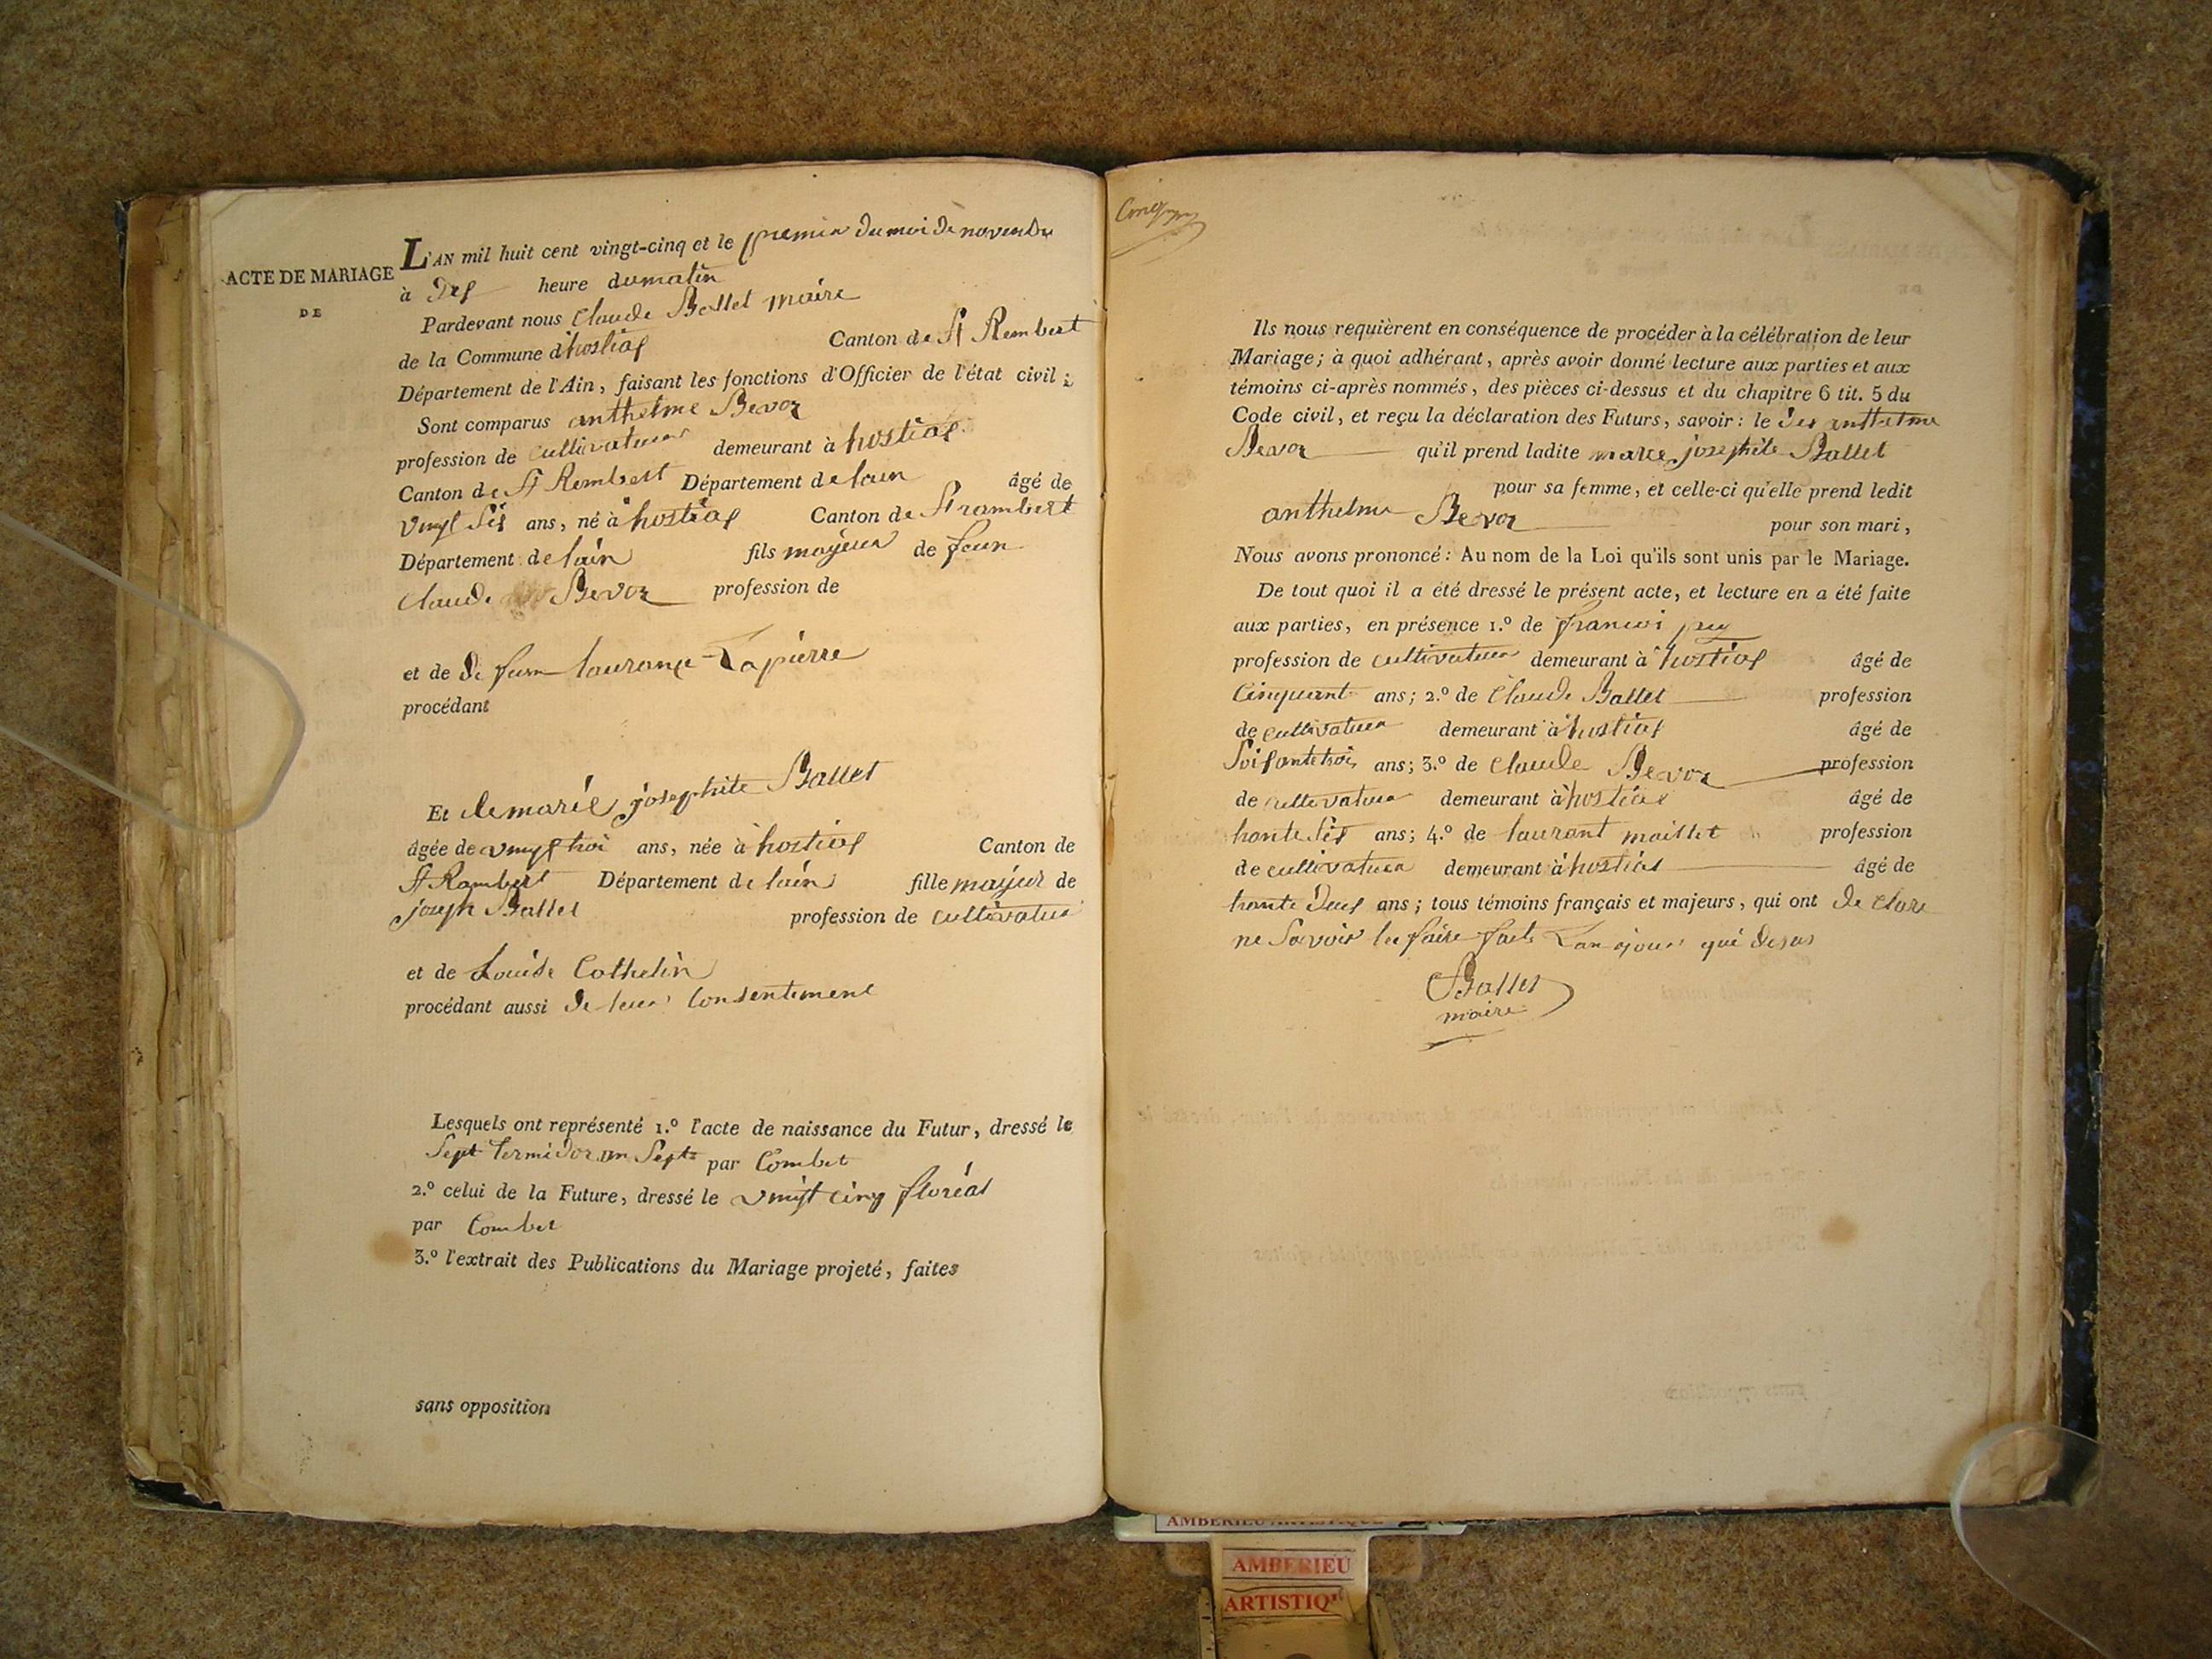 ACTE DE MARIAGE
DE
L'AN mil huit cent vingt-cinq et le premier du moi de novembre
à dix heure du matin
Pardevant nous Claude Ballet maire
de la Commune d'hostias Canton de St Rembert
Département de l'Ain, faisant les fonctions d'Officier de l'état civil ;
Sont comparus anthelme Bevoz
profession de cultivateur demeurant à hostias
Canton de St Rembert Département de lain âgé de
vingt sis ans, né à hostias Canton de St rambert
Département de lain fils majeur de feun
Claude Bevoz profession de
et de de feun lauranse Lapierre
procédant
Et de marie josephite Ballet
âgée de vingt troi ans, née à hostias Canton de
St Rambert Département de lain fille majeur de
joseph Ballet profession de cultivateur
et de Louise Cothelin
procédant aussi de leur Consentement
Lesquels ont représenté 1.º l'acte de naissance du Futur, dressé le
Sept termidor an Sept par Combet
2.º celui de la Future, dressé le vingt cinq floréal
par Combet
3.º l'extrait des Publications du Mariage projeté, faites
sans opposition
Ils nous requièrent en conséquence de procéder à la célébration de leur
Mariage ; à quoi adhérant, après avoir donné lecture aux parties et aux
témoins ci-après nommés, des pièces ci-dessus et du chapitre 6 tit. 5 du
Code civil, et reçu la déclaration des Futurs, savoir : le anthelme
Bevoz qu'il prend ladite marie josephite Ballet
pour sa femme, et celle-ci qu'elle prend ledit
anthelme Bevoz pour son mari,
Nous avons prononcé : Au nom de la Loi qu'ils sont unis par le Mariage.
De tout quoi il a été dressé le présent acte, et lecture en a été faite
aux parties, en présence 1.º de francoi
profession de cultivateur demeurant à hostias âgé de
Cinquant ans ; 2.º de Claude Ballet profession
de cultivateur demeurant à hostias âgé de
Soisante trois ans ; 3.º de Claude Bevoz profession
de cultivateur demeurant à hostias âgé de
trante sis ans ; 4.º de laurant maillet profession
de cultivateur demeurant à hostias âgé de
trante deus ans ; tous témoins français et majeurs, qui ont de clare
ne Savoir le faire fait Lan ajour que desus
Ballet
maire
AMBERIEU ARTISTIQUE
AMBERIEU
ARTISTIQ